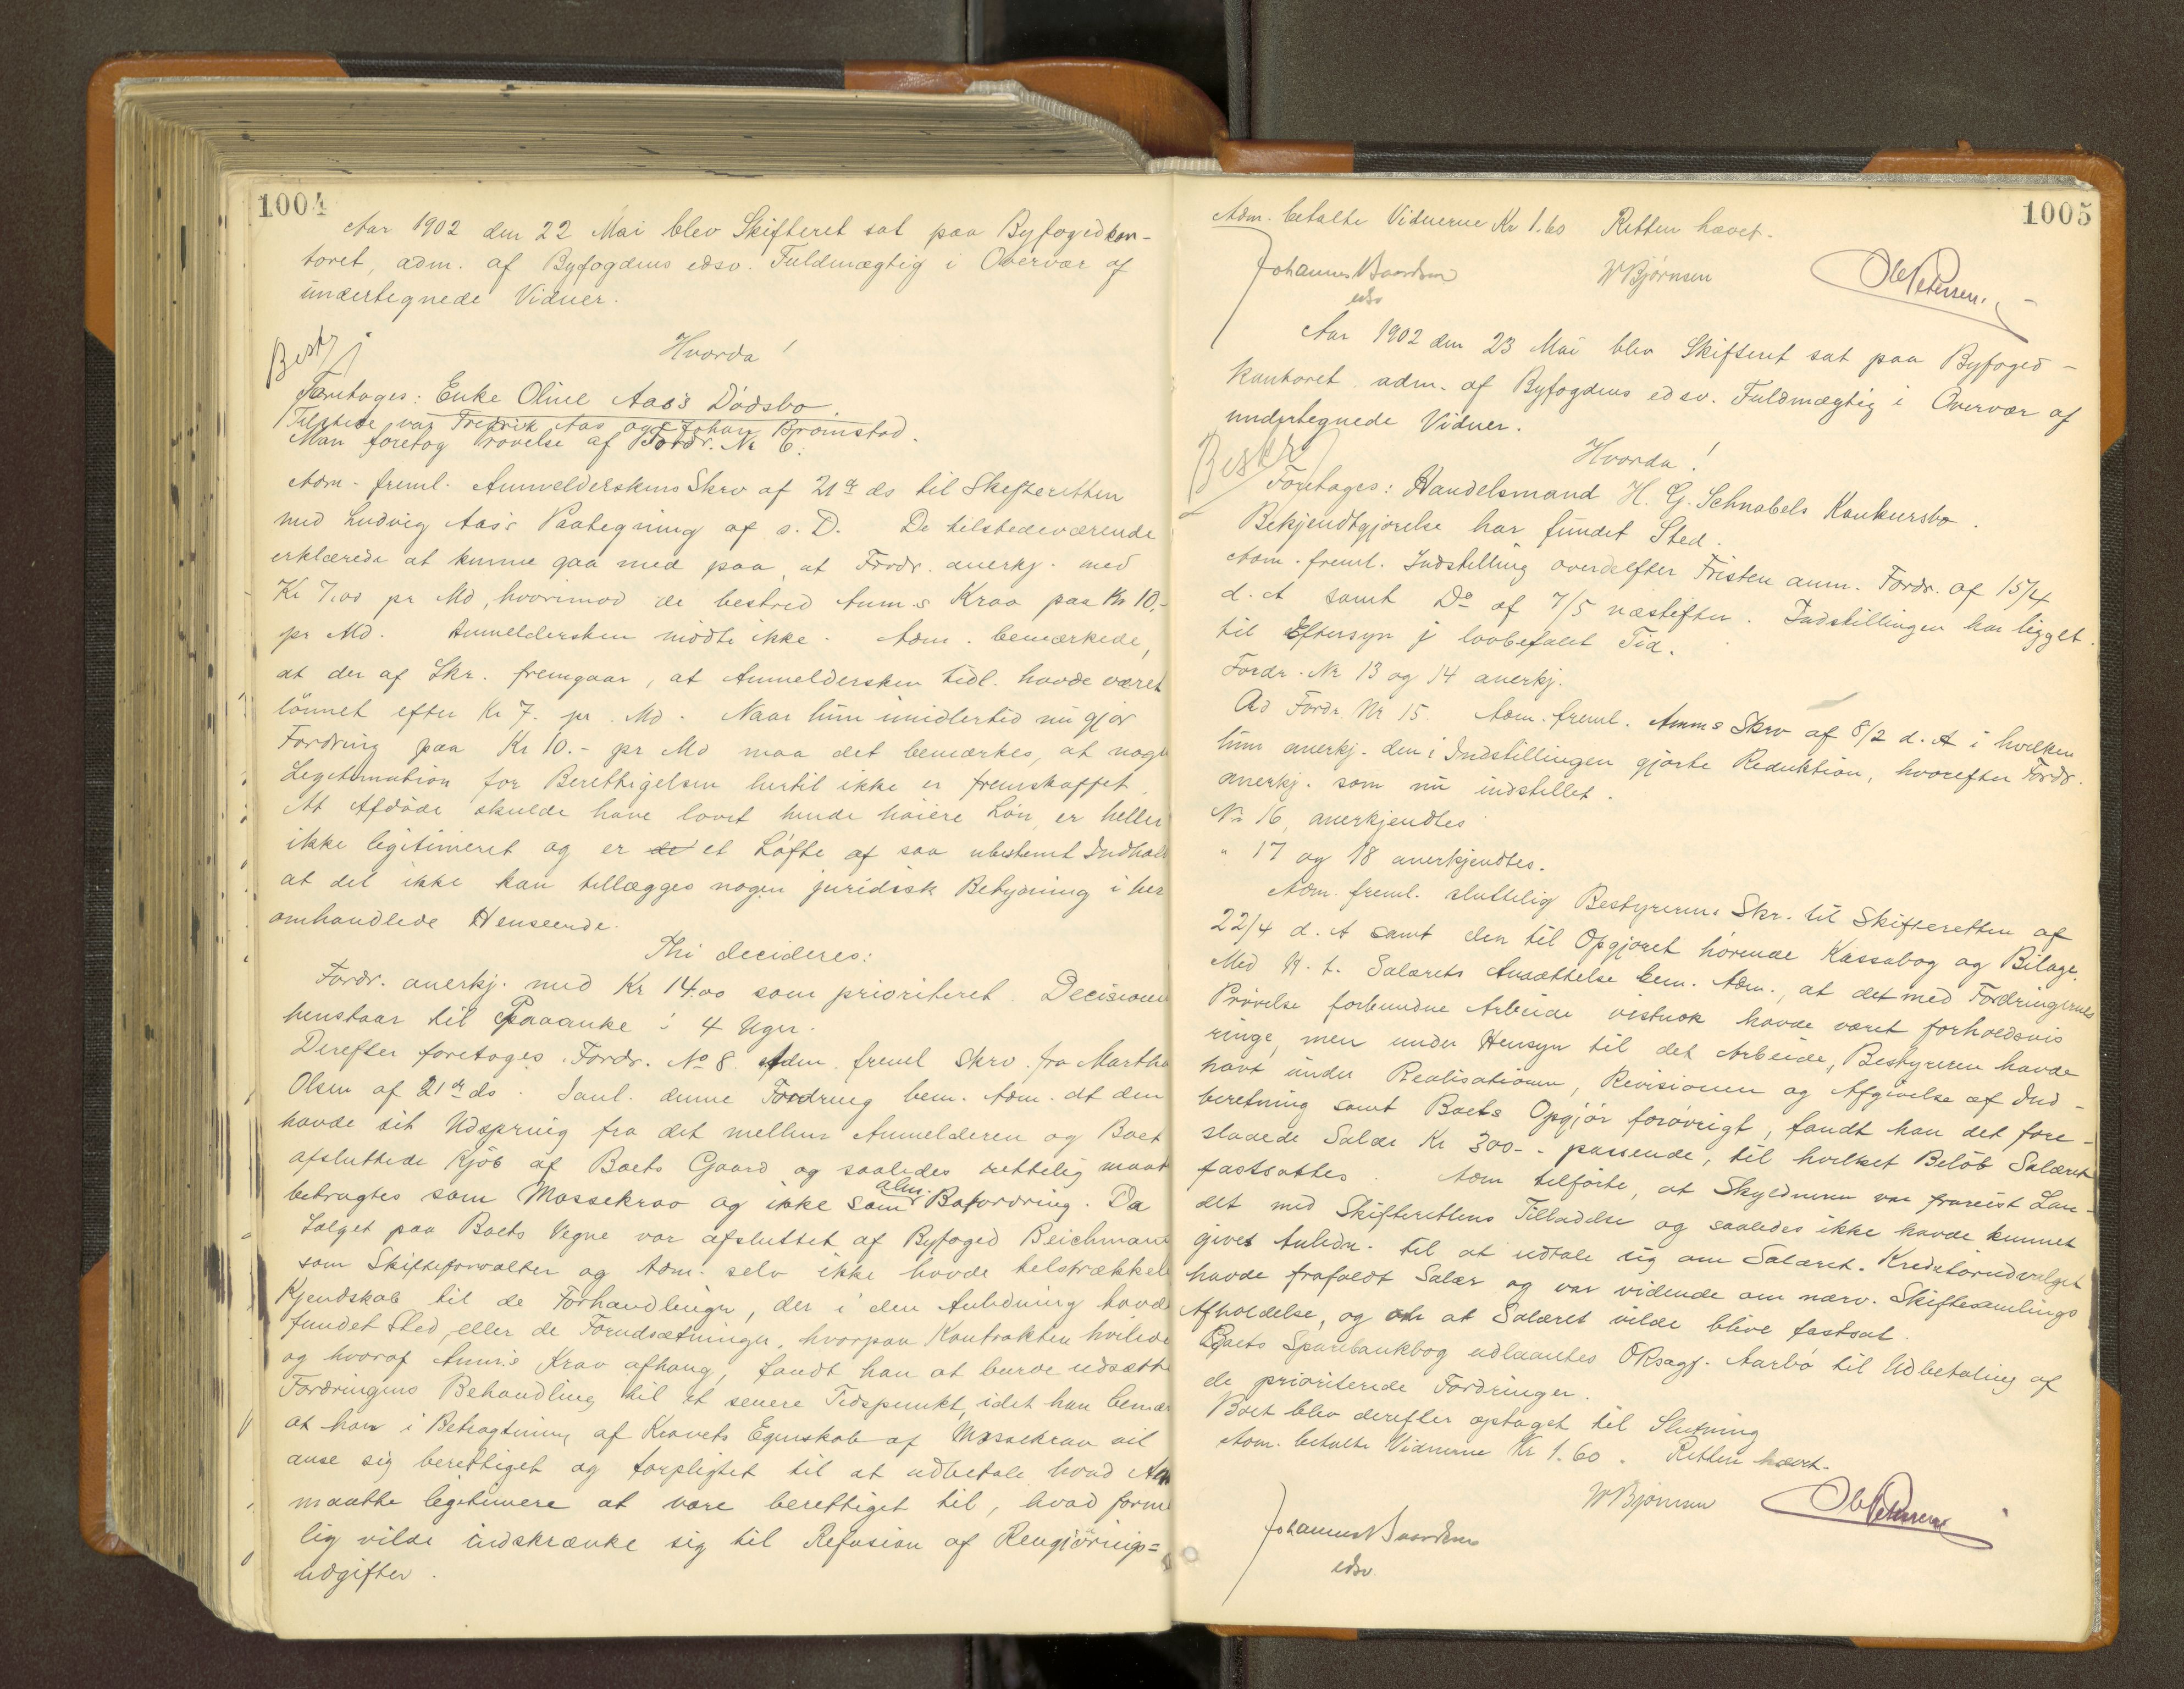 1004
Aar 1902 den 22 Mai blev Skifteret sat paa Byfogedkon-
toret, adm. af Byfogdens edsv. Fuldmægtig i Overvær af
undertegnede Vidner.
Hvorda!
Beskr
Foretages: Enke Oline Aas's Dødsbo.
Tilstede var Fredrik Aas og Johan Brømstad.
Man foretog Prøvelse af Fordr. Nr 6.
Adm. freml. Anmelderskens Skrv af 21de ds til Skifteretten
med Ludvig Aas's Paategning af s. D. De tilstedeværende
erklærede at kunne gaa med paa, at Fordr. anerkj. med
Kr 7.00 pr Md, hvorimod de bestred Anm.s Krav paa Kr 10,-
pr Md. Anmeldersken mødte ikke. Adm. bemærkede,
at der af Skr. fremgaar, at Anmeldersken tidl. havde været
lønnet efter Kr 7. pr. Md. Naar hun imidlertid nu gjør
Fordring paa Kr 10.- pr Md maa det bemærkes, at noge
Legitimation for Berettigelsen hertil ikke er fremskaffet.
At Afdøde skulde have lovet hende høiere Løn, er heller
ikke legitimeret og er de et Løfte af saa ubestemt Indhold
at det ikke kan tillægges nogen juridisk Betydning i her
omhandlede Henseende.
Thi decideres:
Fordr. anerkj. med Kr 14.00 som prioriteret. Decisionen
henstaar til Paaanke i 4 Uger.
Derefter foretoges Fordr. No 8. Adm. freml Skrv. fra Martha
Olsen af 21de ds. Saul. denne Fordring bem. Adm. at den
havde sit Udspring fra det mellem Anmelderen og Boet
afsluttede Kjøb af Boets Gaard og saaledes rettelig maat
betragtes som Massekrav og ikke som alm Bofordring. Da
Salget paa Boets Vegne var afsluttet af Byfoged Beichmann
som Skifteforvalter og Adm. selv ikke havde telstrækkele
Kjendskab til de Forhandlinger, der i den Anledning havde
fundet Sted, eller de Forudsætninger, hvorpaa Kontrakten hvilede
og hvoraf Anm.s Krav afhang, fandt han at burde udsætte
Fordringens Behandling til et senere Tidspunkt, idet han bemær
at han i Betragtning af Kravets Egenskab af Massekrav vil
anse sig berettiget og forpligtet til at udbetale hvad Anm
maatte legitimere at være berettiget til, hvad forme
lig vilde indskrænke sig til Refusion af Rengjørings=
udgifter.
1005
Adm. betalte Vidnerne Kr 1.60 Retten hævet.
Johannes Baardsen
edsv
W Bjørnsen
Ole Petersen.
Aar 1902 den 23 Mai blev Skifteret sat paa Byfoged-
kontoret adm. af Byfogdens edsv. Fuldmægtig i Overvær af
undertegnede Vidner.
Hvorda!
Beskr
Foretages: Handelsmand H. G. Schnabels Konkursbo.
Bekjendtgjørelse har fundet Sted.
Adm. freml. Indstilling over de efter Fristen anm. Fordr. af 15/4
d. A samt Do af 7/5 næstefter. Indstillingen har ligget
til Eftersyn i lovbefalet Tid.
Fordr. Nr 13 og 14 anerkj.
Ad Fordr Nr 15. Adm. freml. Anm s Skrv af 8/2 d. A i hvilken
hun anerkj. den i Indstillingen gjorte Reduktion, hvorefter Fordr.
anerkj. som nu indstillet.
Nr 16, anerkjendtes
" 17 og 18 anerkjendtes.
Adm. freml. sluttelig Bestyrerens Skr. til Skifteretten af
22/4 d. A samt den til Opgjøret hørende Kassabog og Bilage.
Med H. t. Salærets Ansættelse bem. Adm., at det med Fordringernes
Prøvelse forbundne Arbeide vistnok havde været forholdsvis
ringe, men under Hensyn til det Arbeide, Bestyreren havde
havt under Realisationen, Revisionen og Afgivelse af Ind-
beretning samt Boets Opgjør forøvrigt, fandt han det fore-
slaaede Salær Kr 300.- passende, til hvilket Beløb Salæret
fastsattes. Adm tilførte, at Skyldneren var frareist Lan-
det med Skifterettens Tilladelse og saaledes ikke havde kunnet
givet Anledn. til at udtale sig om Salæret. Kreditorudvalget
havde frafaldt Salær og var vidende om nærv. Skiftesamlings
Afholdelse, og om at Salæret vilde blive fastsat.
Boets Sparebankbog udlaantes ORsagf. Aarbø til Udbetaling af
de prioriterede Fordringer.
Boet blev derefter optaget til Slutning
Adm. betalte Vidnerne Kr 1.60. Retten hævet.
W Bjørnsen
Ole Petersen
Johannes Baardsen
edsv.